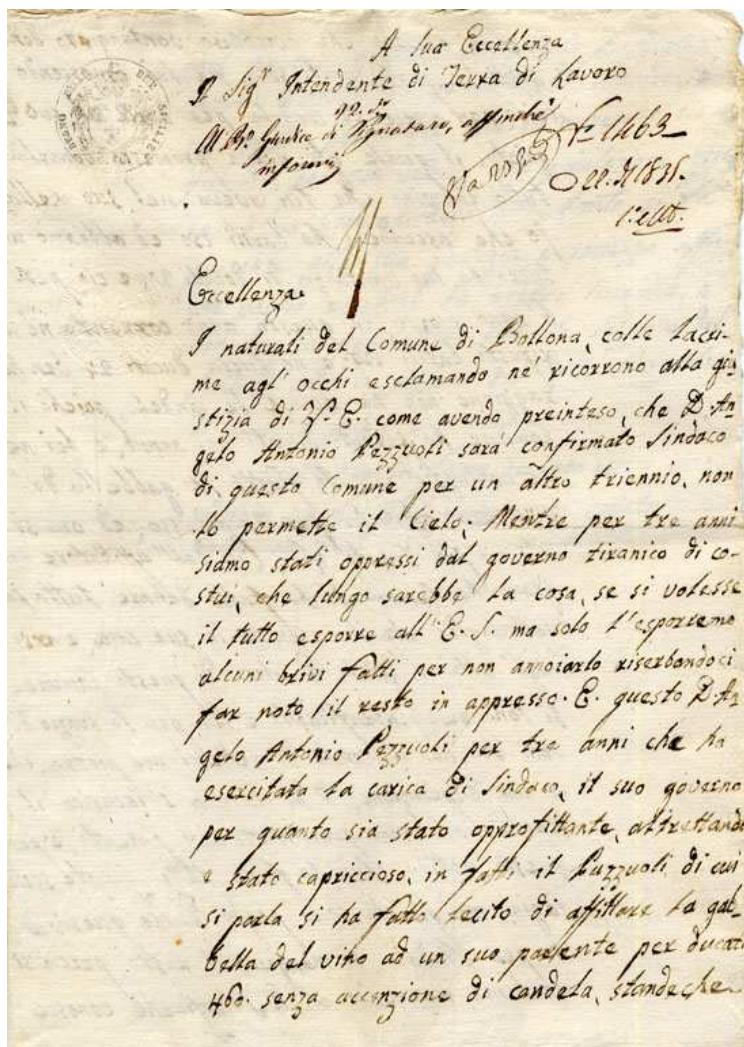 A Sua Eccellenza
Il Sigr Intendente di Terra di Lavoro
Al Giudice di Pignataro, affinchè
informi
No 1463
1831.
Eccellenza
I naturali del Comune di Bollona, colle lacri-
me agl' occhi esclamando ne' ricorrono alla giu-
stizia di V. E. come avendo preinteso, che D. An-
gelo Antonio Pezzuoli sarà confirmato Sindaco
di questo Comune per un altro triennio, non
lo permette il Cielo; Mentre per tre anni
siamo stati oppressi dal governo tiranico di co-
stui, che lungo sarebbe la cosa, se si volesse
il tutto esporre all' E. S. ma solo l'esporremo
alcuni brivi fatti per non annoiarlo riserbandoci
far noto il resto in appresso. E. questo D. An-
gelo Antonio Pezzuoli per tre anni che ha
esercitata la carica di Sindaco, il suo governo
per quanto sia stato opprofittante, altrettando
è stato capriccioso, in fatti il Puzzuoli di cui
si parla si ha fatto lecito di affittare la gab-
bella del vino ad un suo parente per ducati
460. senza accenzione di candela, standeche